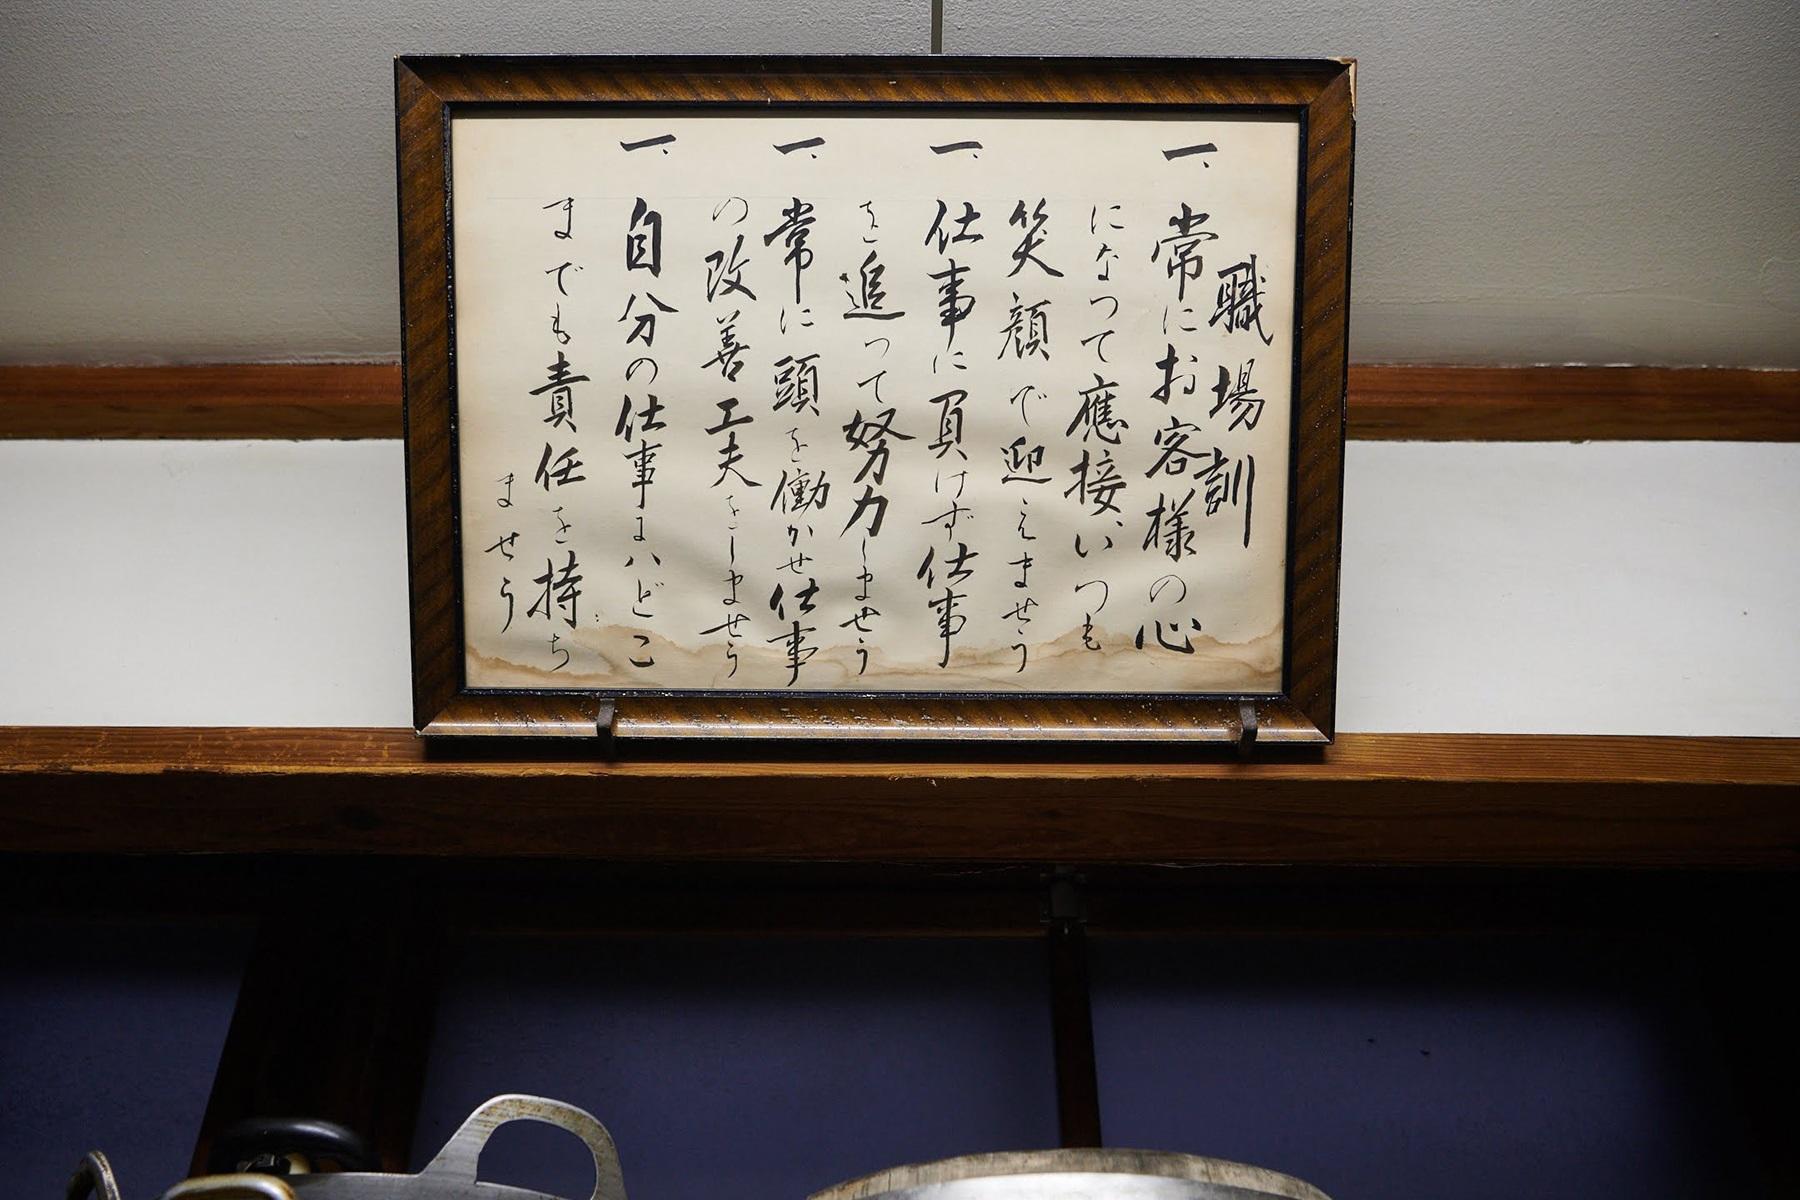 職場訓
一、常にお客様の心
になつて應接、いつも
笑顔で迎えませう
一、仕事に負けず仕事
を追って努力しませう
一、常に頭を働かせ仕事
の改善工夫をしませう
一、自分の仕事にハどこ
までも責任を持ち
ませう